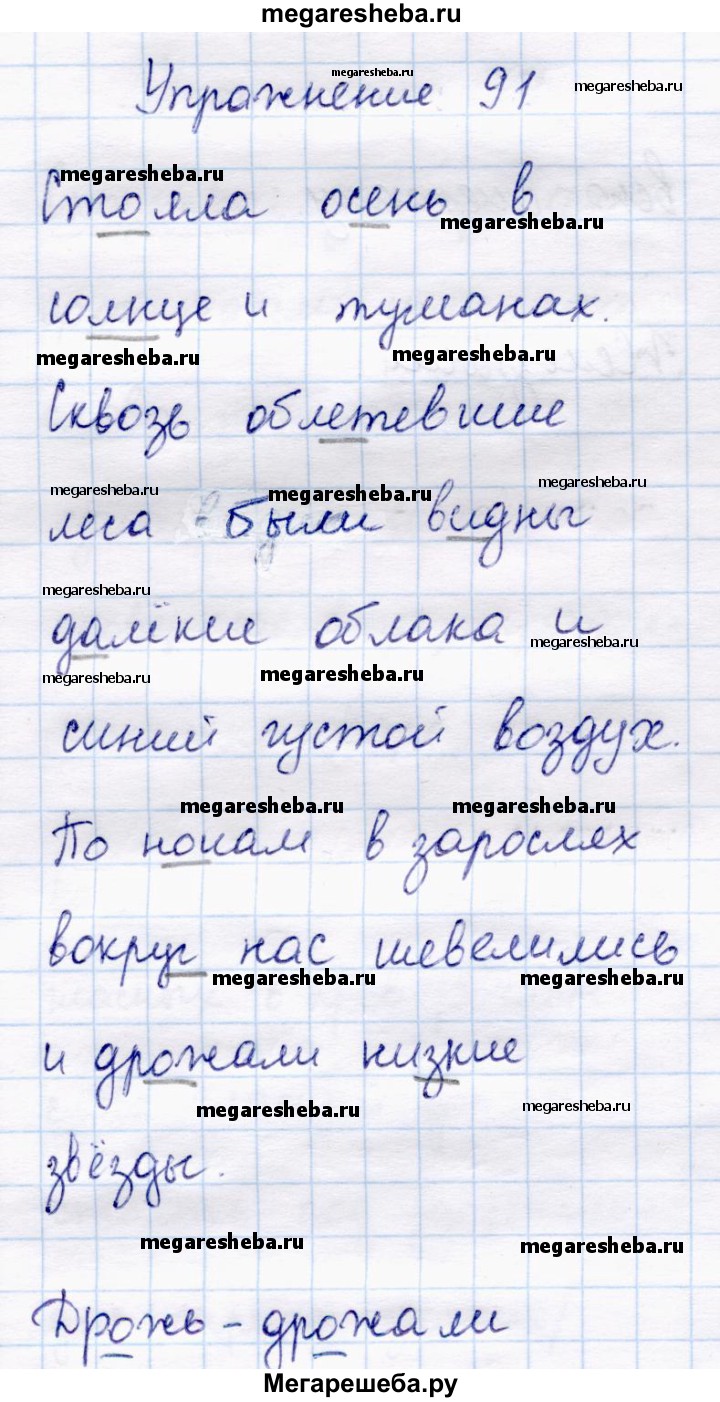 megaresheba.ru
Упражнение 91
megaresheba.ru
megaresheba.ru
megaresheba.ru
Стояла осень в
megaresheba.ru
солнце и туманах.
megaresheba.ru
megaresheba.ru
Сквозь облетевшие
megaresheba.ru
megaresheba.ru
megaresheba.ru
леса были видны
megaresheba.ru
далёкие облака и
megaresheba.ru
megaresheba.ru
megaresheba.ru
синий густой воздух.
megaresheba.ru
megaresheba.ru
По ночам в зарослях
вокруг нас шевелились
megaresheba.ru
megaresheba.ru
и дрожали низкие
megaresheba.ru
megaresheba.ru
звёзды.
megaresheba.ru
megaresheba.ru
Дрожь - дрожали
Мегарешеба.ру